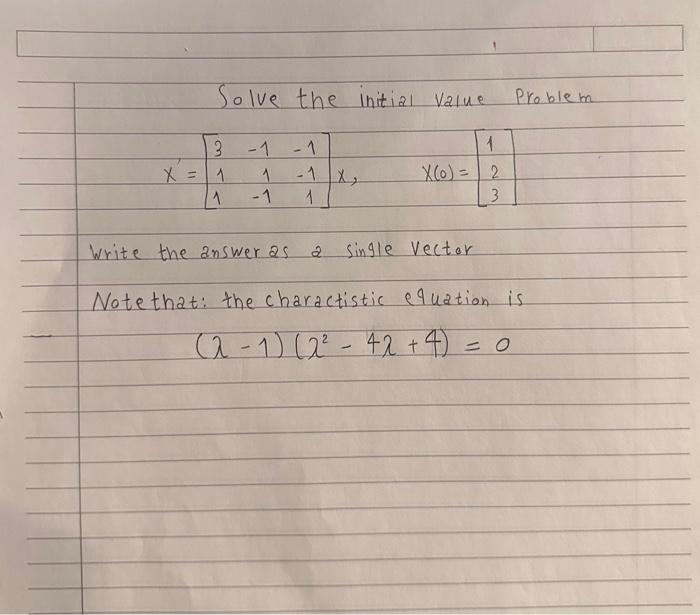 Solve the initial value Problem
X' = [3 -1 -1; 1 1 -1; 1 -1 1] X, X(0) = [1; 2; 3]
Write the answer as a single vector
Note that: the charactistic equation is
(λ - 1) (λ² - 4λ + 4) = 0